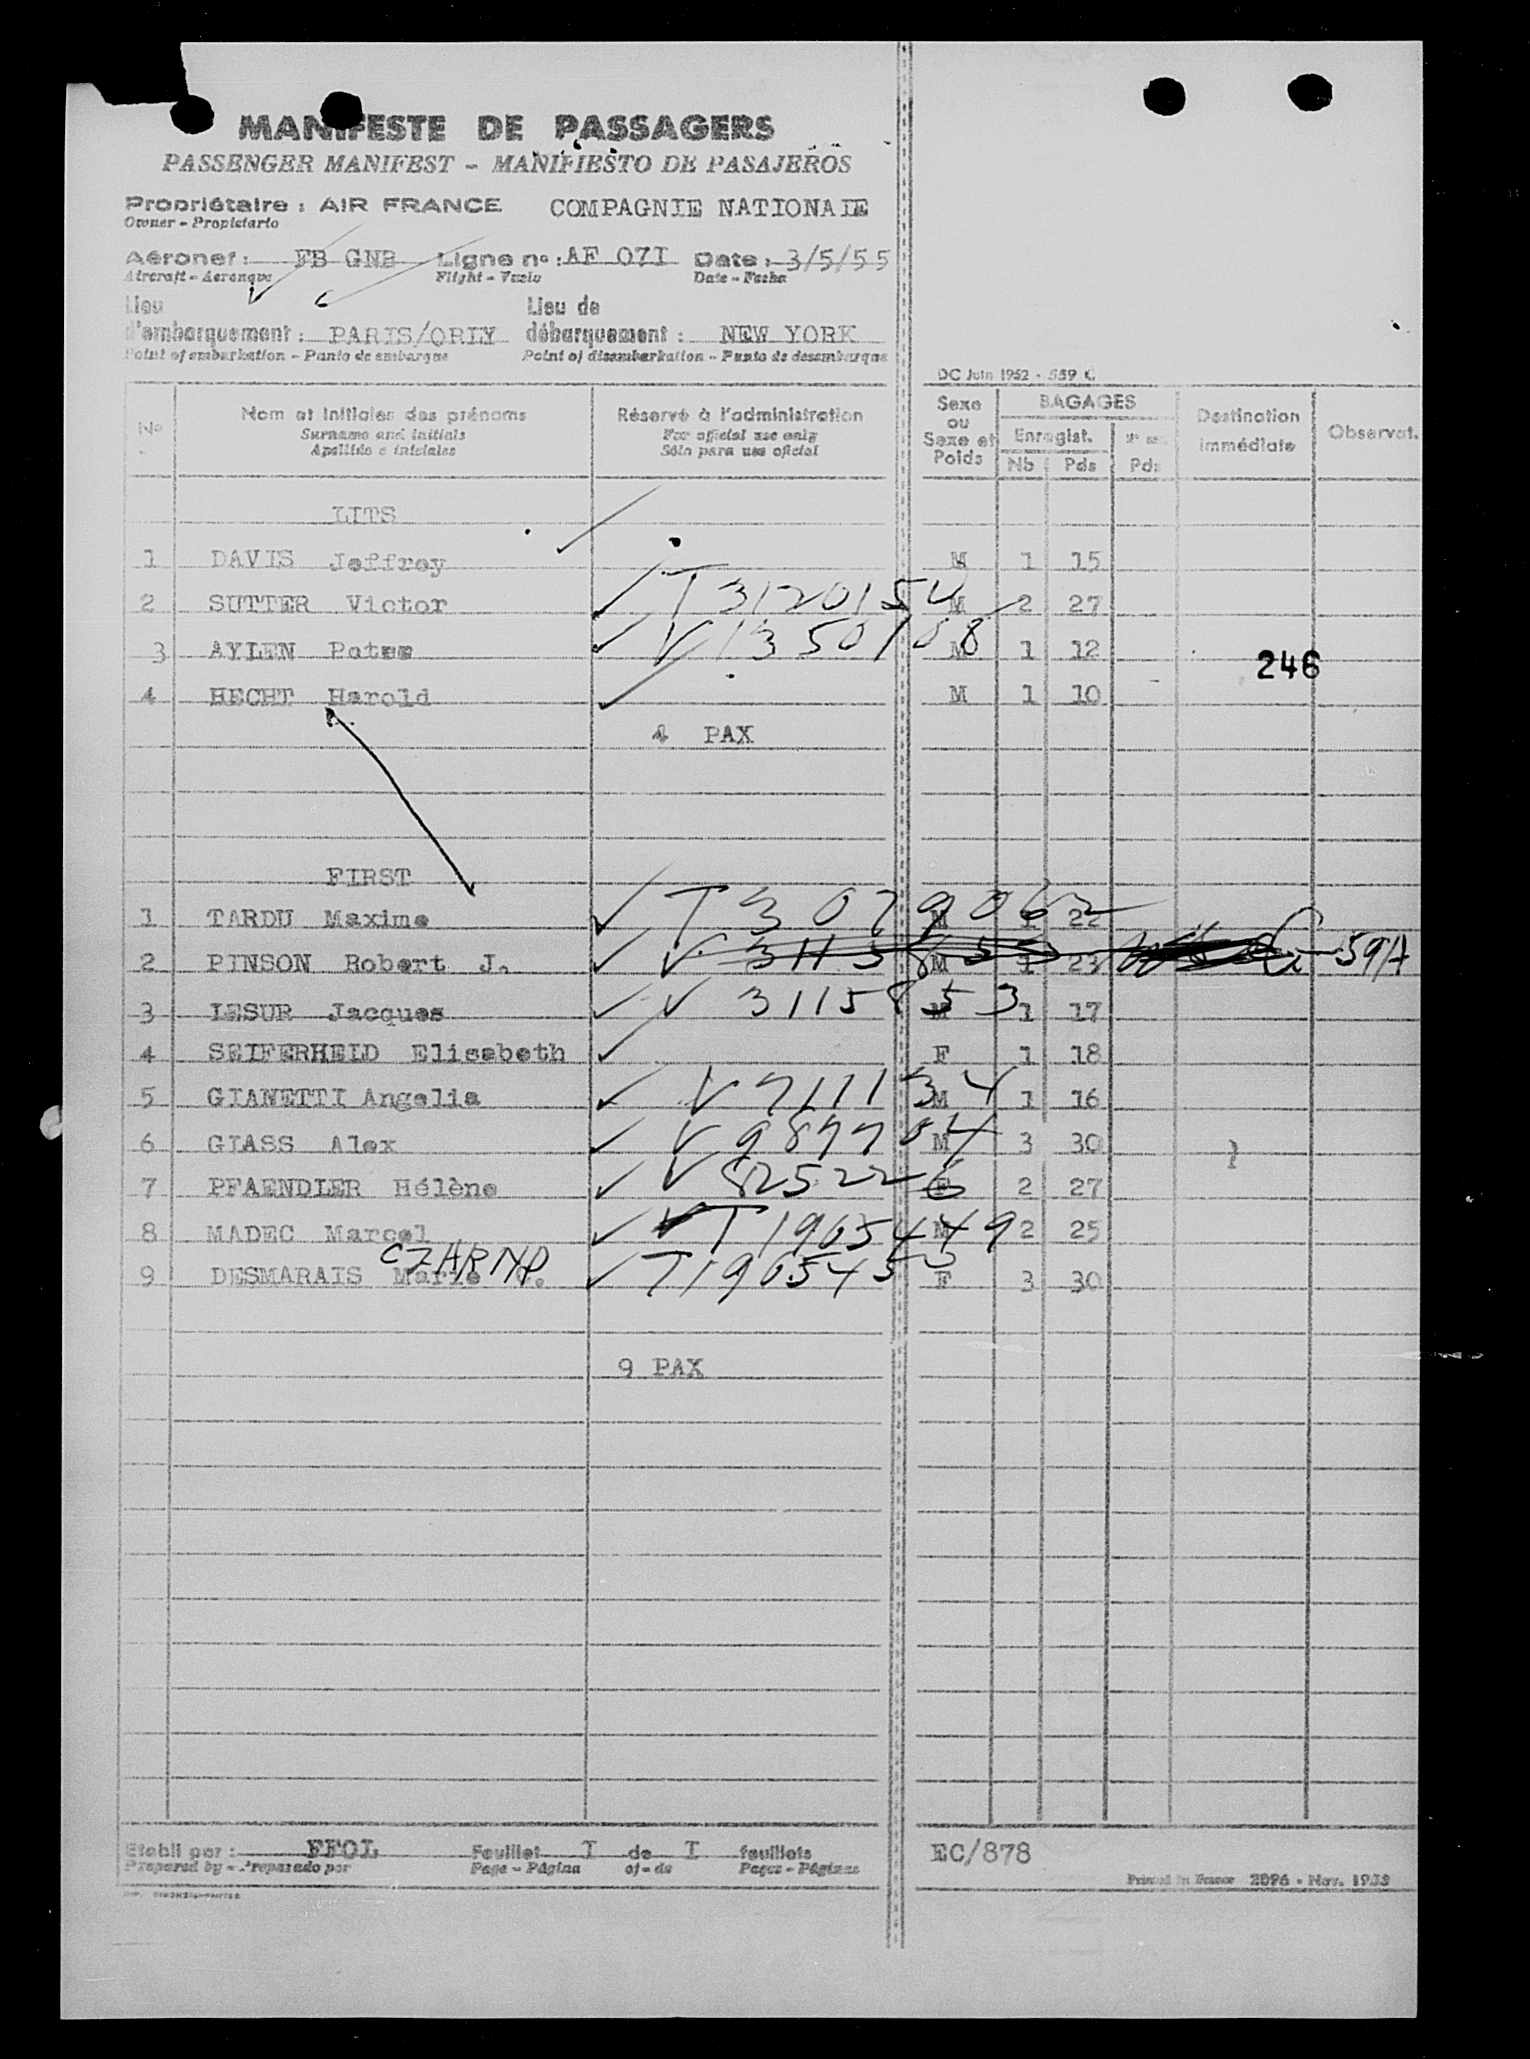 MANIFESTE DE PASSAGERS
PASSENGER MANIFEST - MANIFIESTO DE PASAJEROS
Propriétaire : AIR FRANCE COMPAGNIE NATIONALE
Owner - Propietario
Aéronef : FB GNB Ligne no : AF 07I Date : 3/5/55
Aircraft - Aeronave Flight - Vuelo Date - Fecha
Lieu d'embarquement : PARIS/ORLY Lieu de débarquement : NEW YORK
Point of embarkation - Punto de embarque Point of disembarkation - Punto de desembarque
DC Juin 1952 - 559 C
No Nom et initiales des prénoms Réservé à l'administration Sexe ou Sexe et Poids BAGAGES Destination immédiate Observat.
Surname and initials For official use only Enregist.
Apellido e iniciales Sólo para uso oficial Nb Pds Pds
LITS
1 DAVIS Jeffrey M 1 15
2 SUTTER Victor T 3120154 M 2 27
3 AYLEN Peter V 1350108 M 1 12
246
4 HECHT Harold M 1 10
4 PAX
FIRST
1 TARDU Maxime T 3079062 M 1 22
2 PINSON Robert J. V 3115853 M 1 23 59A
3 LESUR Jacques V 3115853 M 1 17
4 SEIFERHELD Elisabeth F 1 18
5 GIANETTI Angelia V 711134 M 1 16
6 GLASS Alex V 987704 M 3 30
7 PFAENDLER Hélène V 825226 F 2 27
8 MADEC Marcel T 1965449 M 2 25
CZARNA
9 DESMARAIS Marie C. T 1965453 F 3 30
9 PAX
Etabli par : FFOL Feuillet I de I feuillets EC/878
Prepared by - Preparado por Page - Página of - de Pages - Páginas
Printed in France 2096 - Nov. 1953